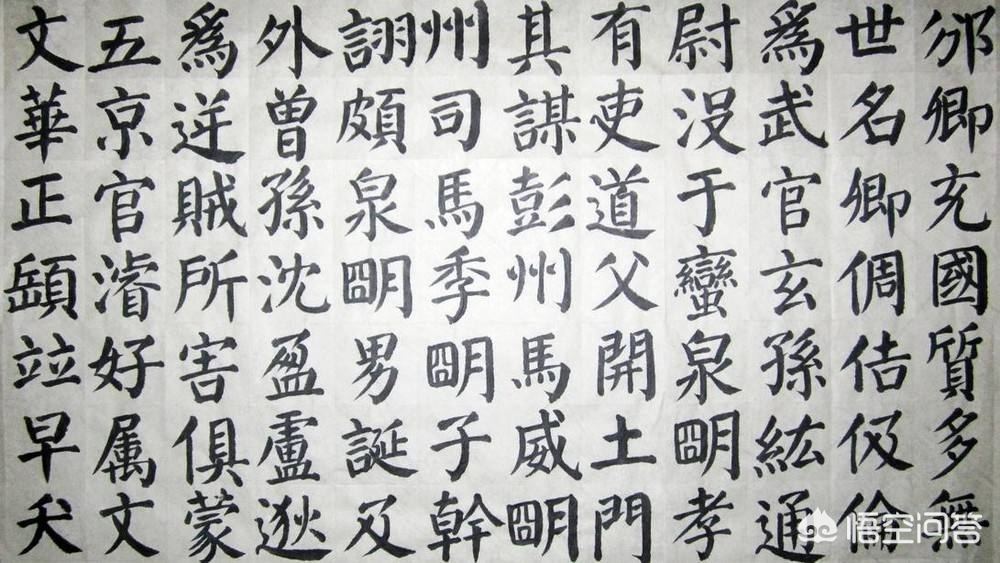 邠卿充國質多無
世名卿倜佶伋倫
爲武官玄孫紘通
尉没于蠻泉明孝
有吏道父開土門
其謀彭州馬威明
州司馬季明子幹
詡頗泉明男誕及
外曾孫沈盈盧逖
爲逆賊所害俱蒙
五京官濬好属文
文華正頣竝早夭
悟空问答